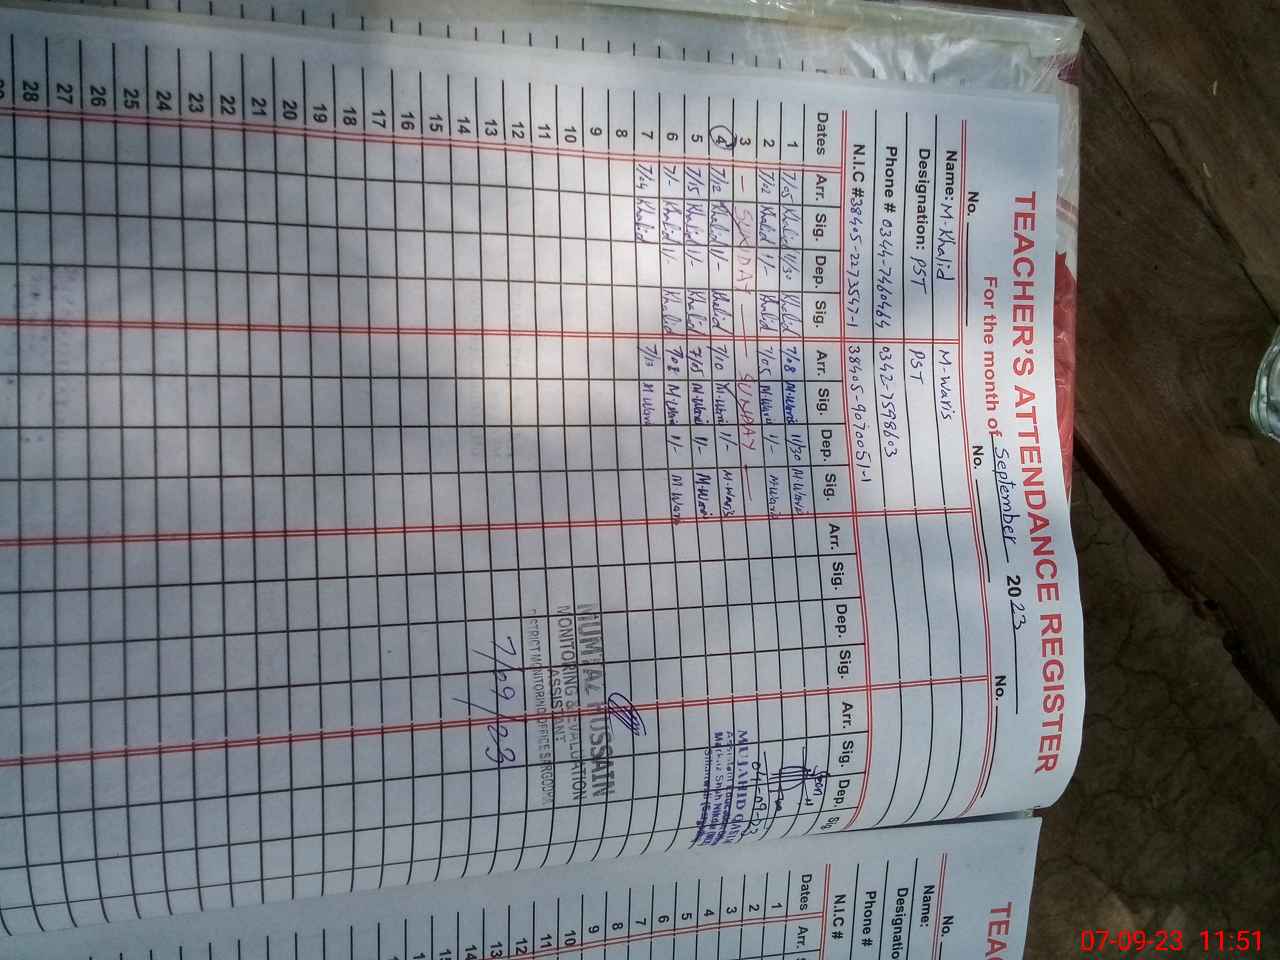 TEACHER'S ATTENDANCE REGISTER
For the month of September 2023
No. No. No.
Name: M. Khalid M. Waris
Designation: PST PST
Phone # 0344-7460464 0342-7598603
N.I.C # 38405-2273547-1 38405-9070051-1
Dates Arr. Sig. Dep. Sig. Arr. Sig. Dep. Sig. Arr. Sig. Dep. Sig. Arr. Sig. Dep. Sig.
1 7/05 Khalid 11/30 Khalid 7/08 M.Waris 11/30 M.Waris
2 7/02 Khalid 11/- Khalid 7/05 M.Waris 11/- M.Waris
3 — SUNDAY — SUNDAY —
4 7/12 Khalid 11/- Khalid 7/10 M.Waris 11/- M.Waris
5 7/15 Khalid 11/- Khalid 7/05 M.Waris 11/- M.Waris
6 7/- Khalid 11/- Khalid 7/08 M.Waris 11/- M.Waris
7 7/24 Khalid 7/13 M.Waris
8
9
10
11
12
13
14
15
16
17
18
19
20
21
22
23
24
25
26
27
28
04-09-23
MUJAHID
MUMTAZ HUSSAIN
MONITORING & EVALUATION
ASSISTANT
DISTRICT MONITORING OFFICE SARGODHA
7/09/23
No.
Name:
Phone #
N.I.C #
Dates Arr.
1
2
3
4
5
6
7
8
9
10
11
12
13
14
07-09-23 11:51